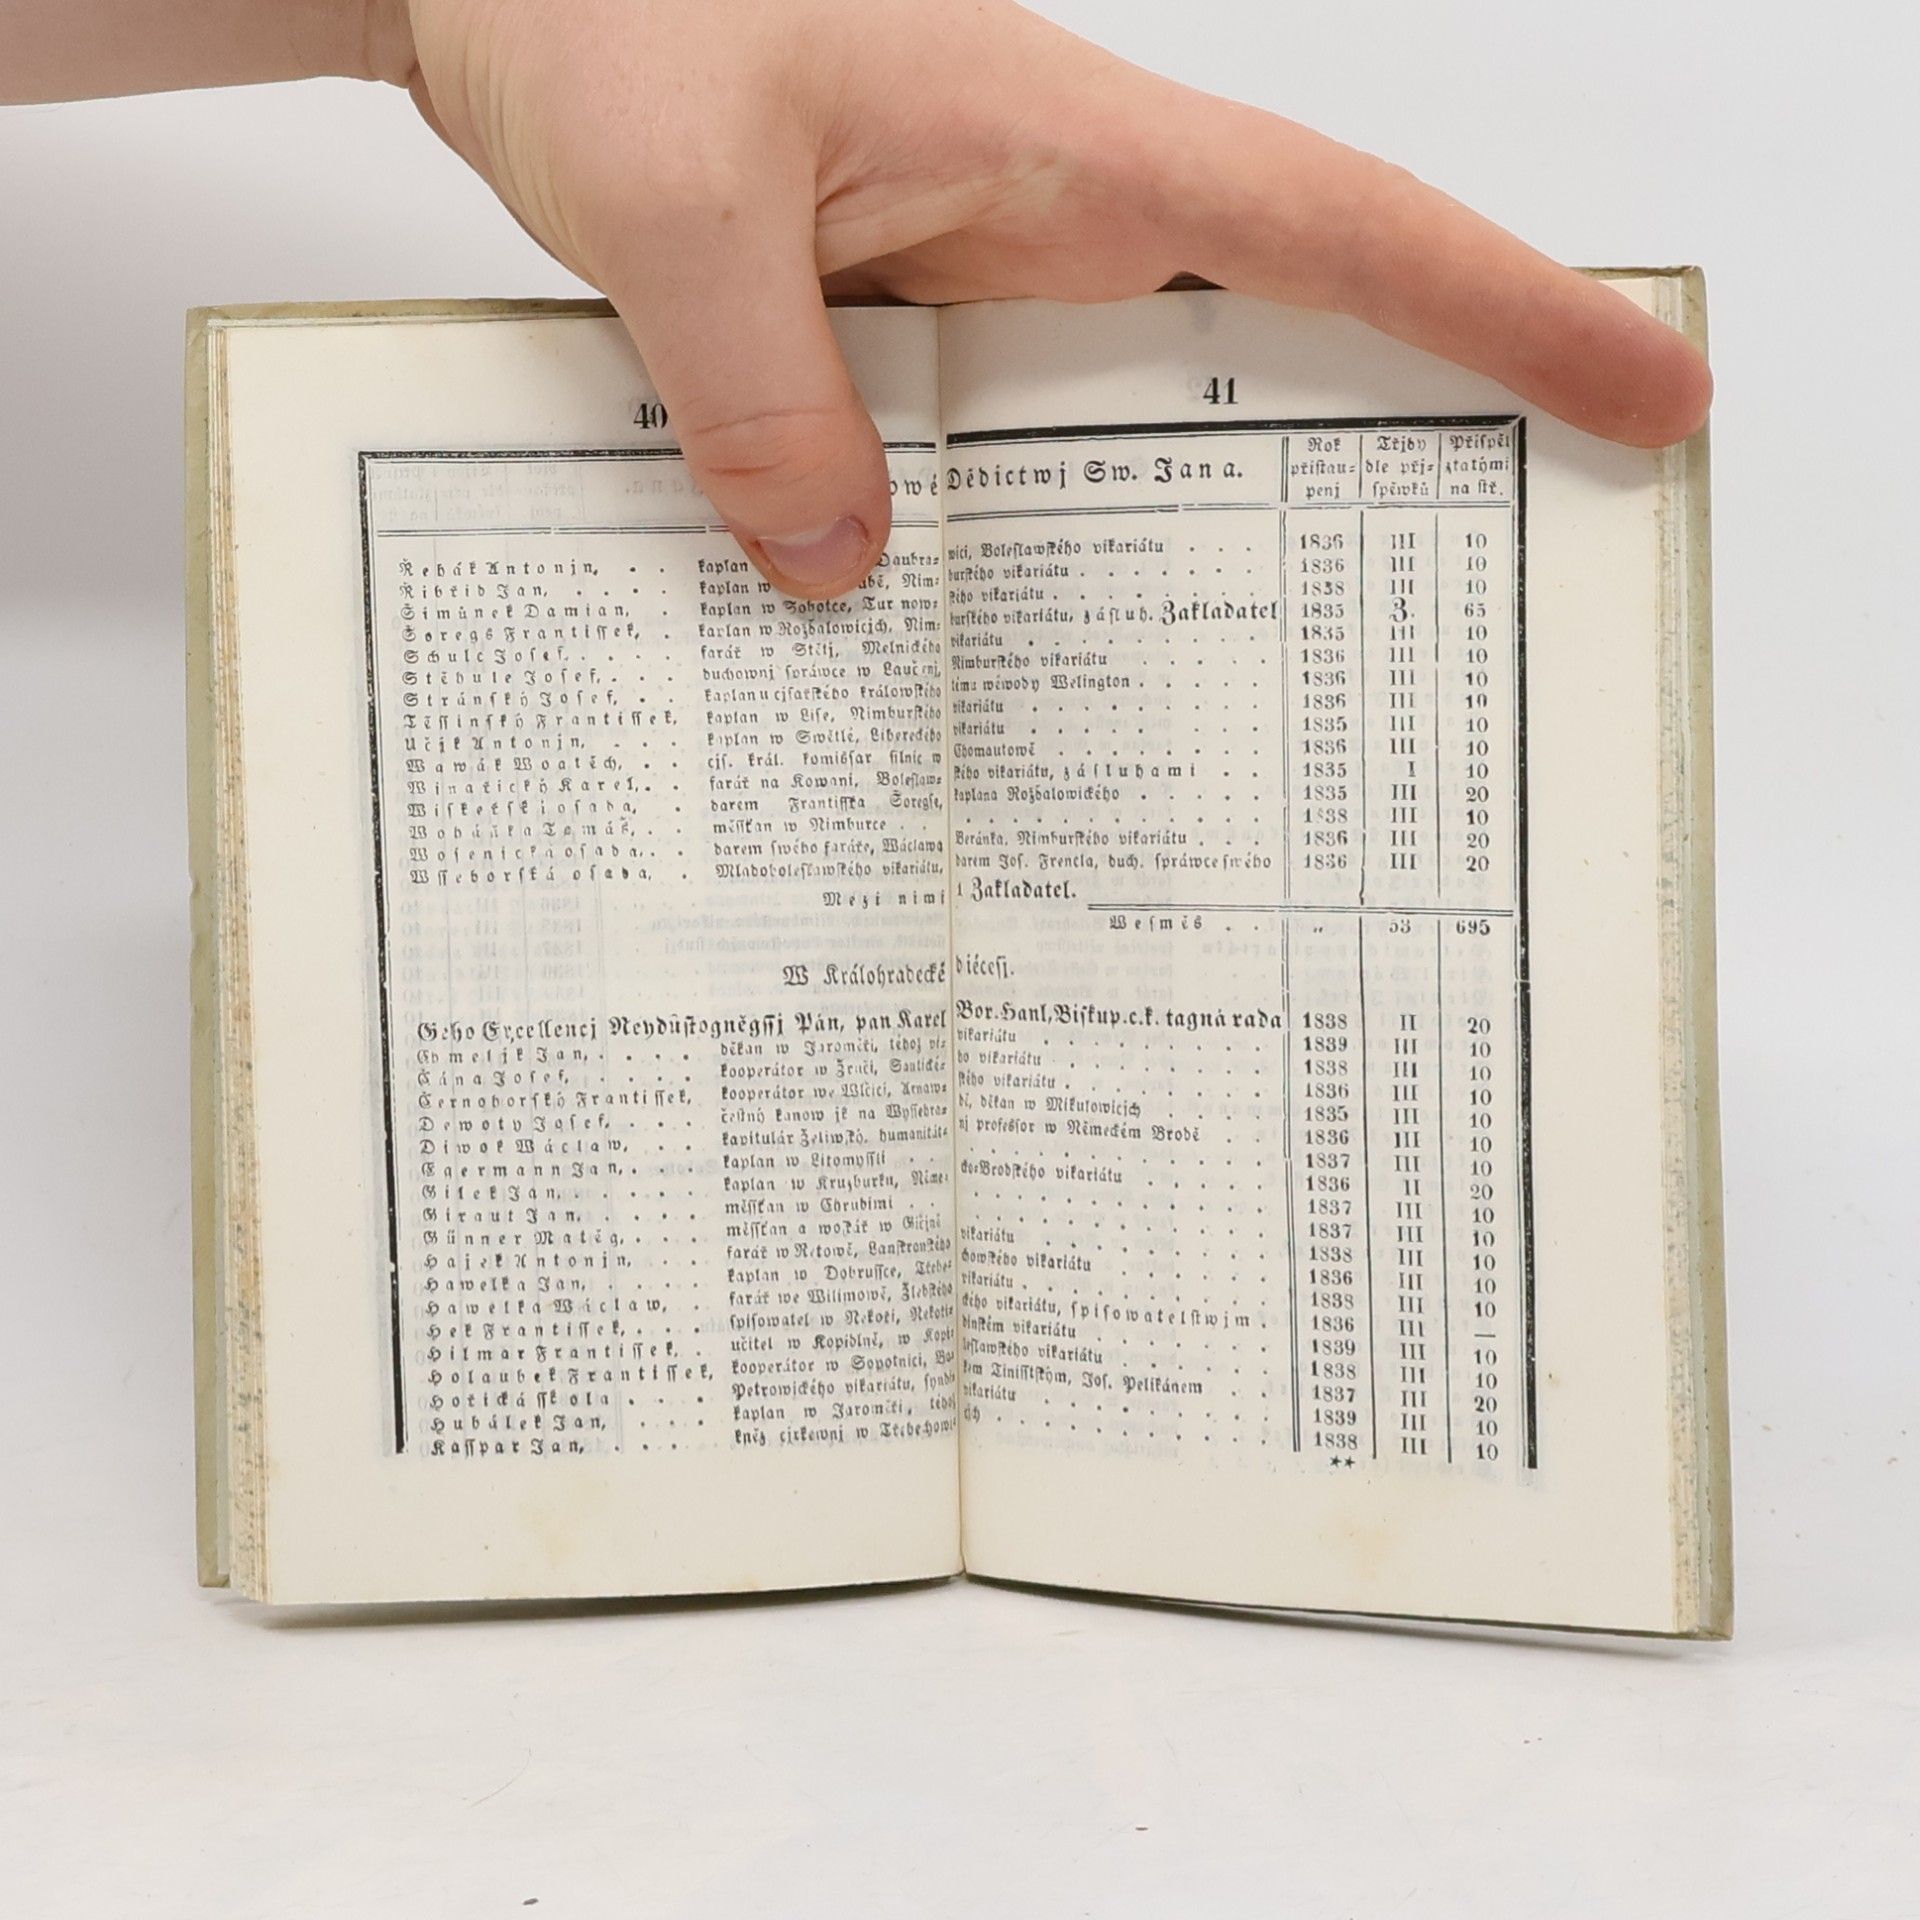 40
41
owé Dědictwj Sw. Jana.
Rok přistaupenj
Třjdy dle přjspěwků
Přispěl ztatými na stř.
Řehák Antonjn, . . kaplan Daubrawici, Boleslawského vikariátu . . . 1836 III 10
Ribřid Jan, . . . . kaplan w Nimburského vikariátu . . . . . . 1836 III 10
Šimůnek Damian, . kaplan w Sobotce, Turnowského vikariátu . . . . . . 1838 III 10
Šoregs Frantissek, . kaplan w Rožďalowicjch, Nimburského vikariátu, zásluh. Zakladatel 1835 3. 65
Schulc Josef, . . . . farář w Stětj, Melnického vikariátu . . . . . . 1835 III 10
Stěhule Josef, . . . duchownj spráwce w Laučenj, Nimburského vikariátu . . . . . 1836 III 10
Stránský Josef, . . kaplan u cjsařského králowského wéwody Welington . . . . . 1836 III 10
Těssinský Frantissek, kaplan w Lise, Nimburského vikariátu . . . . . . . 1836 III 10
Učjk Antonjn, . . . kaplan w Swětlé, Libereckého vikariátu . . . . . . 1835 III 10
Wawák Woatěch, . . cjs. král. komissar silnic w Chomautowě . . . . . 1836 III 10
Winařický Karel, . . farář na Kowani, Boleslawského vikariátu, zásluhami . . 1835 I 10
Wiskeřská osada, . darem Frantisska Šoregse, kaplana Rožďalowického . . . . . 1835 III 20
Wobářka Tomáš, . . měssťan w Nimburce . . . . . . . . . . 1838 III 10
Wosenická osada, . . darem swého faráře, Wáclawa Beránka, Nimburského vikariátu . . . 1836 III 20
Wsseborská osada, . Mladoboleslawského vikariátu, darem Jos. Frencla, duch. spráwce swého 1836 III 20
Mezi nimi 1 Zakladatel.
Wesměs . . „ 53 695
W Králohradecké diécesi.
Geho Excellencj Neydůstogněgssj Pán, pan Karel Bor. Hanl, Biskup. c. k. tagná rada 1838 II 20
Chmeljk Jan, . . . . děkan w Jaroměři, téhož vikariátu . . . . . . . 1839 III 10
Čána Josef, . . . . kooperátor w Zruči, vikariátu . . . . . . 1838 III 10
Černohorský Frantissek, kooperátor we Wlčici, Arnawského vikariátu . . . . . . 1836 III 10
Dewoty Josef, . . . čestný kanownjk na Wyssehradě, děkan w Mikulowicjch . . . . 1835 III 10
Diwok Wáclaw, . . kapitulár Želiwský, humanitátnj professor w Německém Brodě . . 1836 III 10
Egermann Jan, . . . kaplan w Litomyssli . . . . . . . . . 1837 III 10
Gilek Jan, . . . . . kaplan w Kruzburku, Německo-Brodského vikariátu . . . . . 1836 II 20
Giraut Jan, . . . . měssťan w Chrudimi . . . . . . . . . 1837 III 10
Günner Matěg, . . . měssťan a woskář w Gičjně . . . . . . . 1837 III 10
Hajek Antonjn, . . . farář w Retowě, Lanskronského vikariátu . . . . . . . 1838 III 10
Hawelka Jan, . . . . kaplan w Dobrussce, Třebechowského vikariátu . . . . . 1836 III 10
Hawelka Wáclaw, . farář we Wilimowě, Žlebského vikariátu . . . . . . . 1838 III 10
Hek Frantissek, . . . spisowatel w Nekoři, vikariátu, spisowatelstwjm . 1836 III —
Hilmar Frantissek, . učitel w Kopidlně, w Kopidlnském vikariátu . . . . . . 1839 III 10
Holaubek Frantissek, kooperátor w Sopotnici, vikariátu . . . . . 1838 III 10
Hořická sskola . . . Petrowjckého vikariátu, Tinisstským, Jos. Pelikánem . . 1837 III 20
Hubálek Jan, . . . kaplan w Jaroměři, téhož vikariátu . . . . . . . 1839 III 10
Kasspar Jan, . . . . kněz cjrkewnj w Třebechowicjch . . . . . . . . 1838 III 10
**